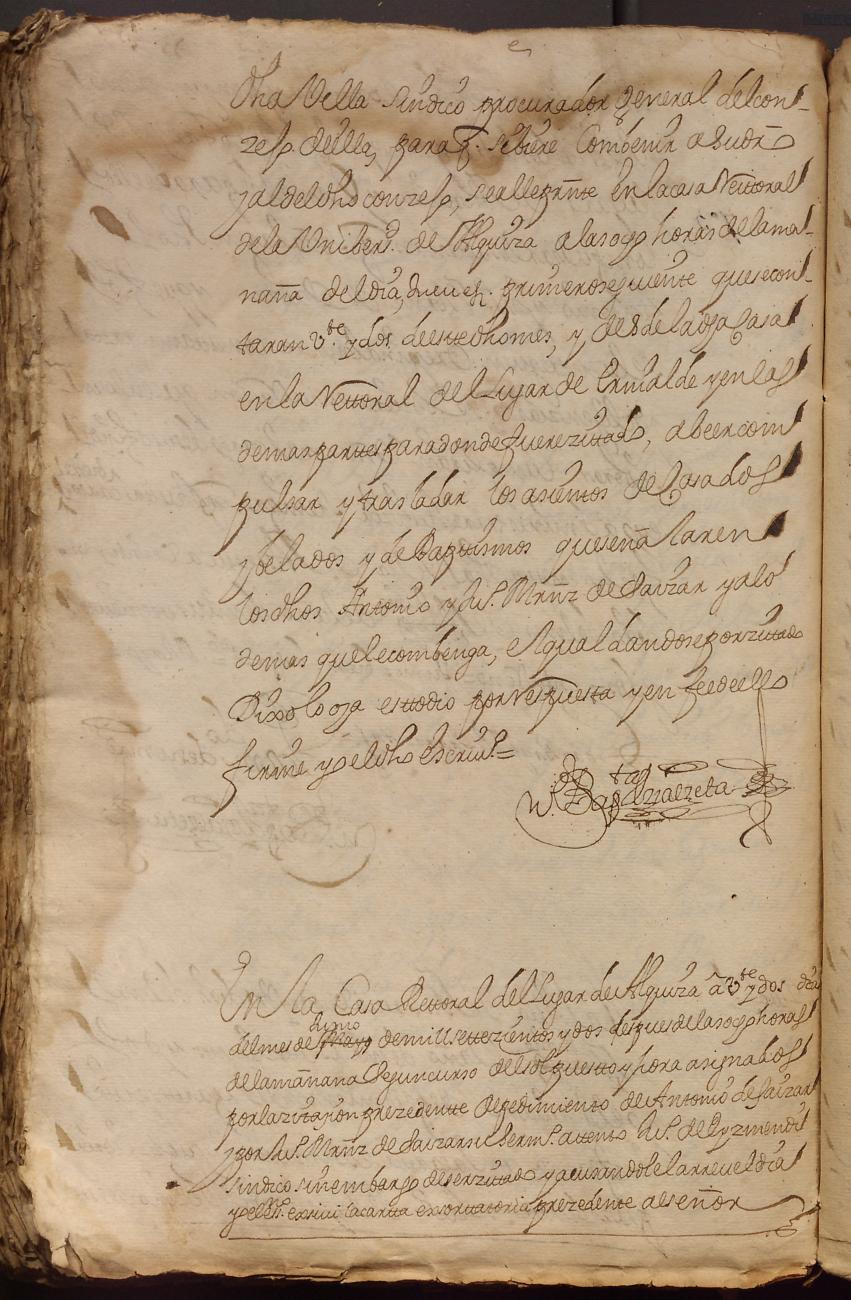 dha Villa sindico procurador general del con-
zejo de ella, para q. si biere combenir a su dro
y al del dho conzejo, se alle presnte en la casa Rettoral
de la Unibersd. de Alquiza a las ocho horas de la ma-
ñana del dia, juebes. primero siguiente que se con-
taran Vte. y dos de este dho mes, y desde la dha Casa
en la Rettoral del Lugar de Ernialde y en las
demas partes para donde fuere zittado, a ber com
pulsar y trasladar los asientos de Casados
y belados y de Baptismos que señalaren
los dhos Antonio y Ju. Mrnz de Saizar y a lo
demas que le combenga, el qual dandose por zittado
Dixo lo oya esto dio por Respuesta y en fee de ello
firme yo el dho escriu.o =
En la Casa Rettoral del Lugar de Alquiza a Vte y dos dias
del mes de Junio de mill settezientos y dos despues de las ocho horas
de la mañana segun curso del sol puesto y hora asignados
por la zitazion prezedente de pedimiento de Antonio de Saizar
y por Ju. Mrnz de Saizar su herm. atento Ju. de Lyzmendi
sindico sin embargo de ser zitado y acusandole la rreveldia
yo el esno. exsivi la carta exsortatoria prezedente al señor